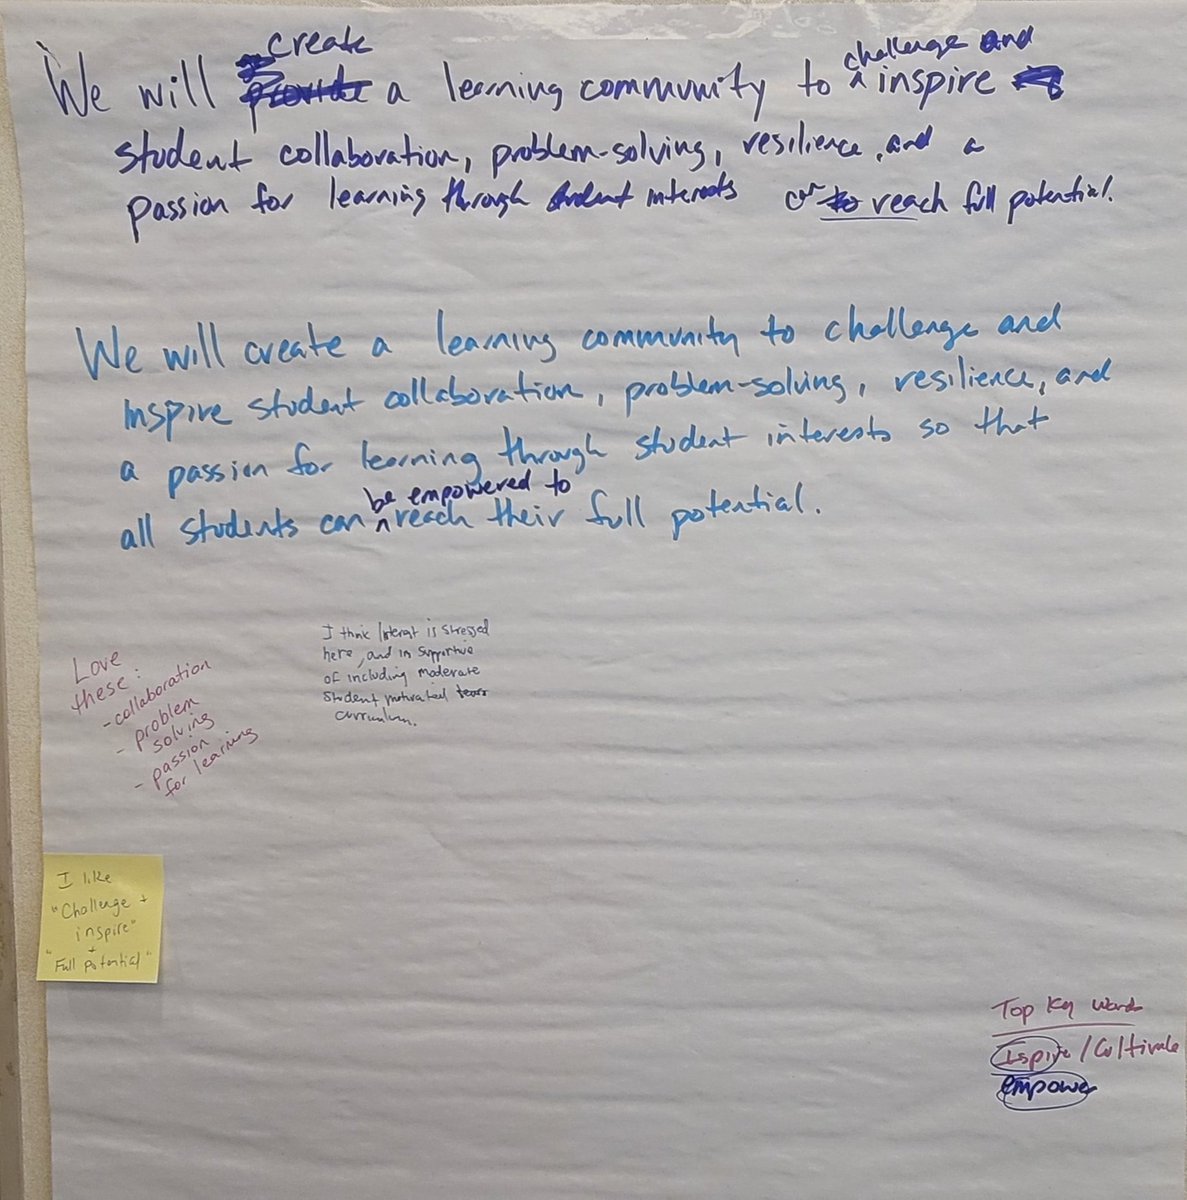 create
We will provide a learning community to challenge and inspire
student collaboration, problem-solving, resilience, and a
passion for learning through student interests to reach full potential.
We will create a learning community to challenge and
inspire student collaboration, problem-solving, resilience, and
a passion for learning through student interests so that
all students can be empowered to reach their full potential.
I think interest is stressed
here, and in supportive
of including moderate
student motivated
curriculum.
Love
these:
- collaboration
- problem
solving
- passion
for learning
I like
"Challenge +
inspire"
+
"Full potential"
Top Key words
Inspire / Cultivate
empower